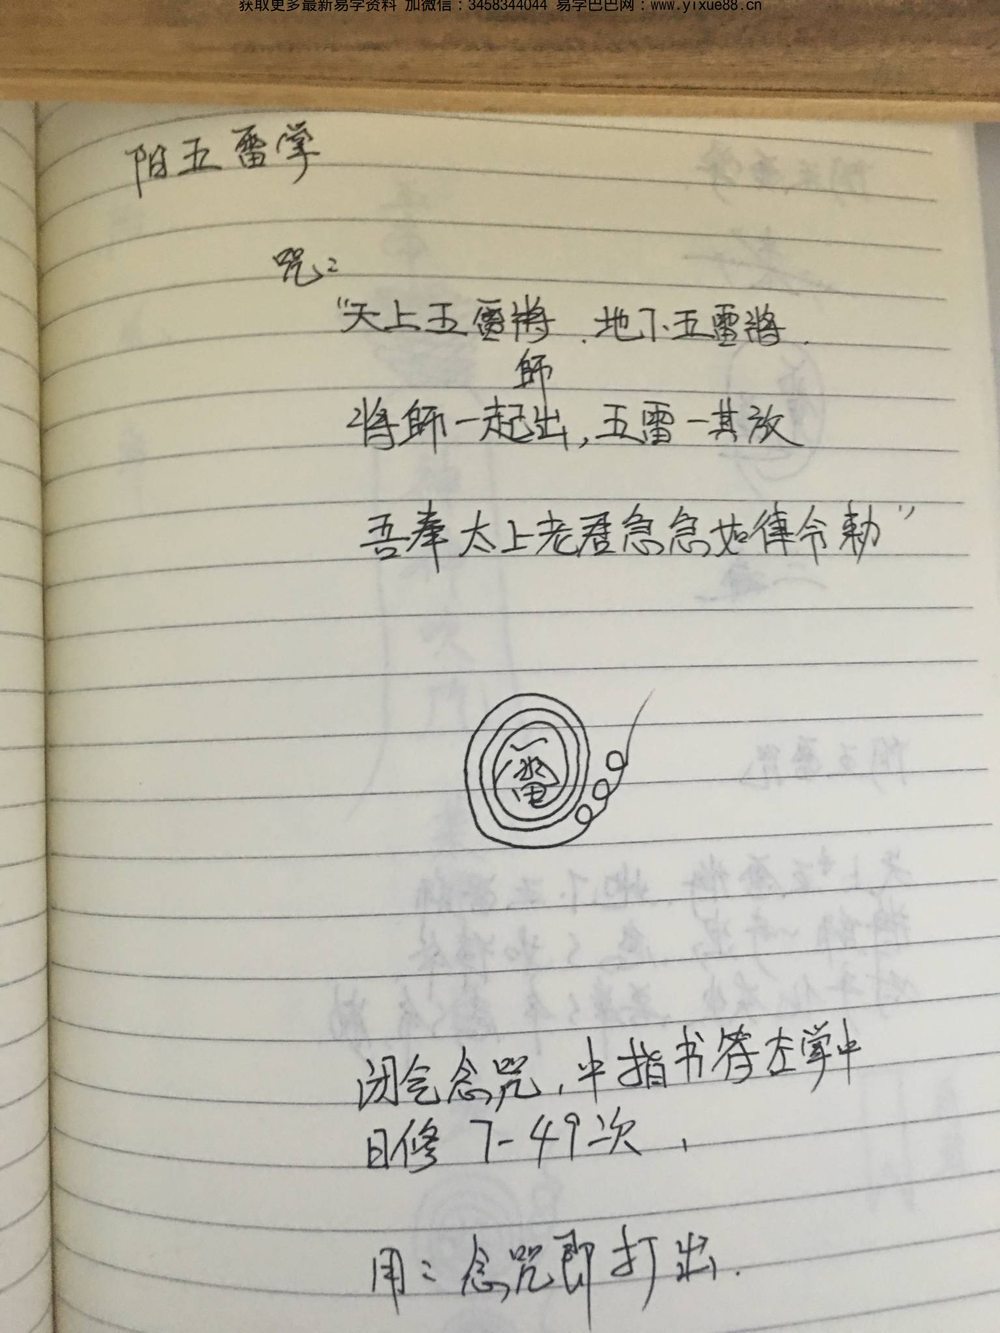 获取更多最新易学资料 加微信：3458344044 易学巴巴网：www.yixue88.cn
阳五雷掌
咒：
“天上五雷将、地下五雷將、
師
將師一起出，五雷一其放
吾奉太上老君急急如律令勅”
雷
闭气念咒，中指书符左掌中
日修 7-49次，
用：念咒即打出.